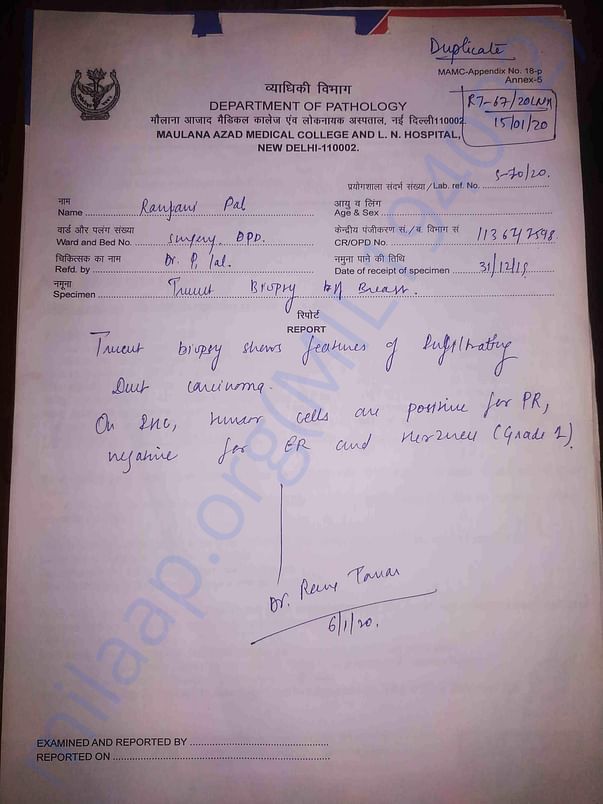 Duplicate
MAMC-Appendix No. 18-p
Annex-5
व्याधिकी विभाग
DEPARTMENT OF PATHOLOGY
मौलाना आजाद मैडिकल कालेज एंव लोकनायक अस्पताल, नई दिल्ली110002.
MAULANA AZAD MEDICAL COLLEGE AND L. N. HOSPITAL,
NEW DELHI-110002.
RT-67/20LNH
15/01/20
प्रयोगशाला संदर्भ संख्या / Lab. ref. No. S-70/20.
नाम
Name Ranjani Pal
आयु व लिंग
Age & Sex
वार्ड और पलंग संख्या
Ward and Bed No. Surgery OPD.
केन्द्रीय पंजीकरण सं./ब. विभाग सं
CR/OPD No.
चिकित्सक का नाम
Refd. by Dr. P. Lal.
नमुना पाने की तिथि
Date of receipt of specimen 31/12/19
नमूना
Specimen Trucut Biopsy Breast.
रिपोर्ट
REPORT
Trucut biopsy shows features of Infiltrating
Duct carcinoma.
On IHC, tumor cells are positive for PR,
negative for ER and Her2neu (Grade 1).
Dr. Renu Tanwar
6/1/20.
EXAMINED AND REPORTED BY
REPORTED ON
milaap.org(MIL-940